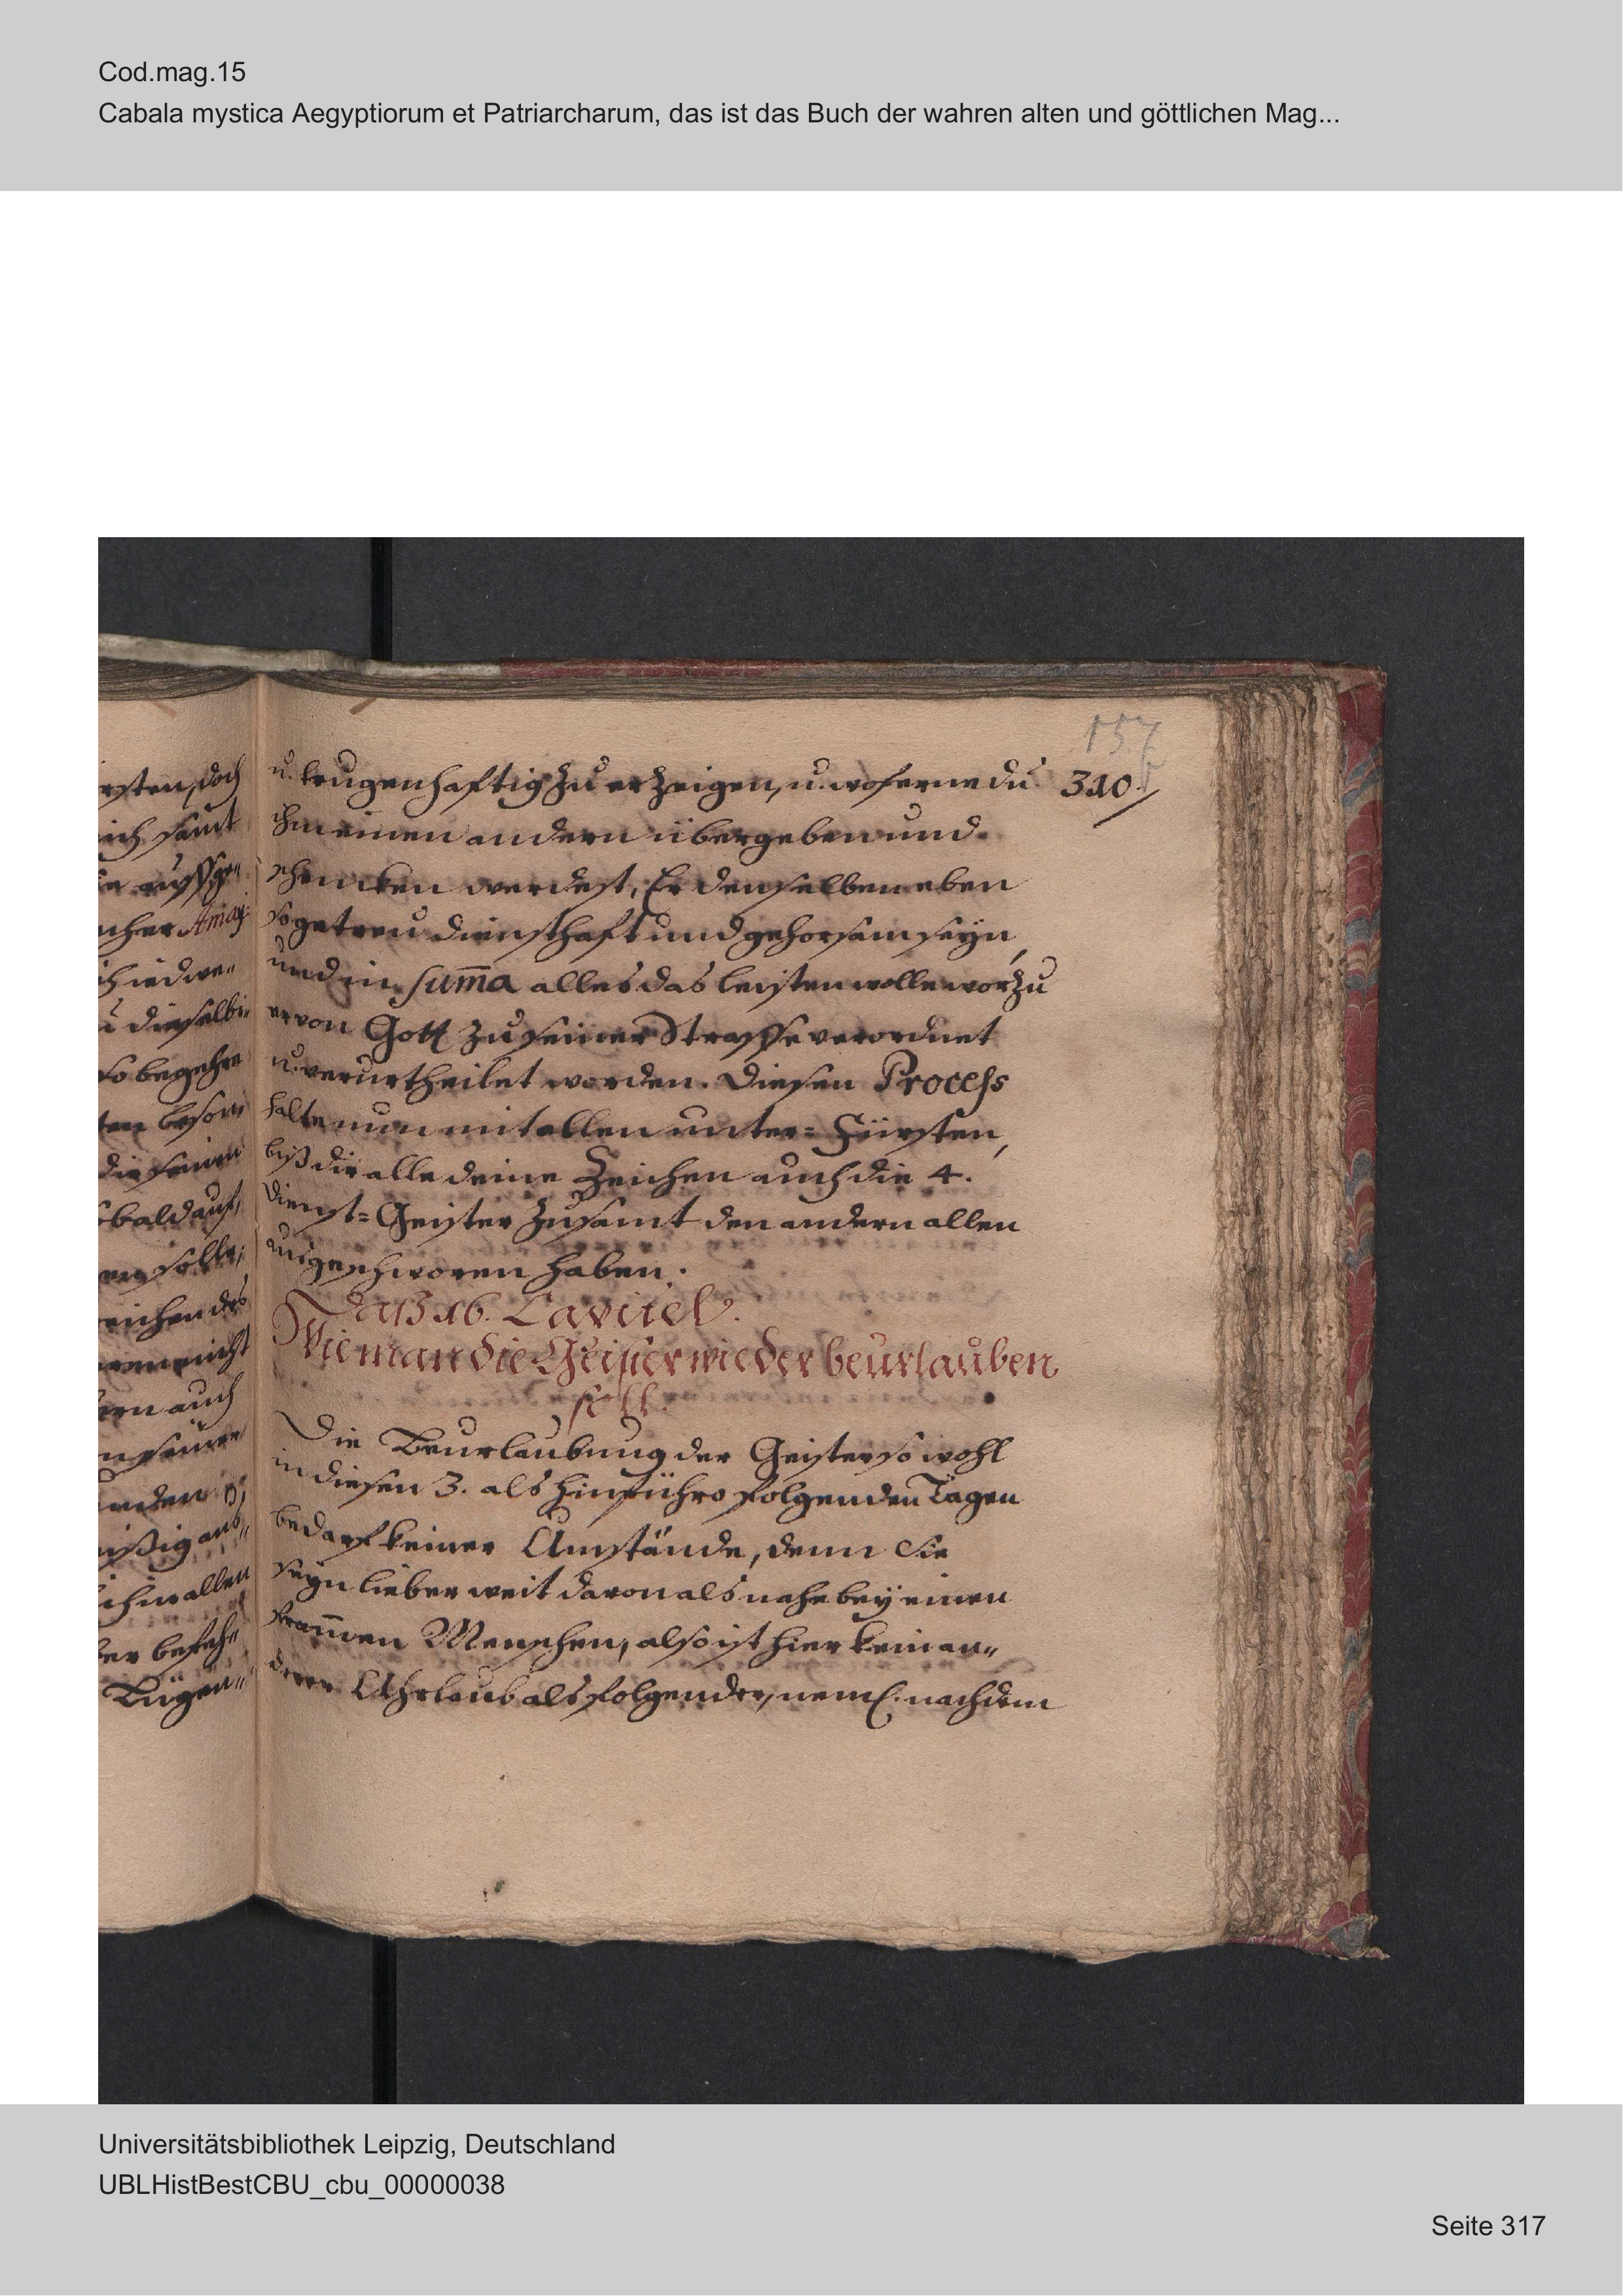 Cod.mag.15
Cabala mystica Aegyptiorum et Patriarcharum, das ist das Buch der wahren alten und göttlichen Mag...
157
310.
rsten, doch
ich samt
cher Amay:
hiedwe„
u dieselbi„
so begehre
sbald auf,
em solle,
eichen des
ern auch
ihm allen
er befehl
Lügen„
u. trugenhafftig zu erzeigen, u. woferne du
ihm einen andern übergeben und
schencken werdest, Er denselben eben
so getreu diensthafft und gehorsam seyn,
und in suma alles das leisten wolle worzu
er von Gott zu seiner Straffe verordnet
u. verurtheilet worden. Diesen Process
halte nun mit allen unter= Fürsten,
biß dir alle deine Zeichen auch die 4.
Dienst=Geister zusamt den andern allen
geschworen haben.
Daß 16. Capitel.
Wie man die Geister wieder beurlauben
soll.
Die Beurlaubung der Geister so wohl
in diesen 3. als hinführo folgenden Tagen
bedarf keiner Umstände, denn Sie
seyn lieber weit davon als nahe bey einen
from̅en Menschen, also ist hier kein an„
derer Uhrlaub als folgender, neml. nachdem
Universitätsbibliothek Leipzig, Deutschland
UBLHistBestCBU_cbu_00000038
Seite 317